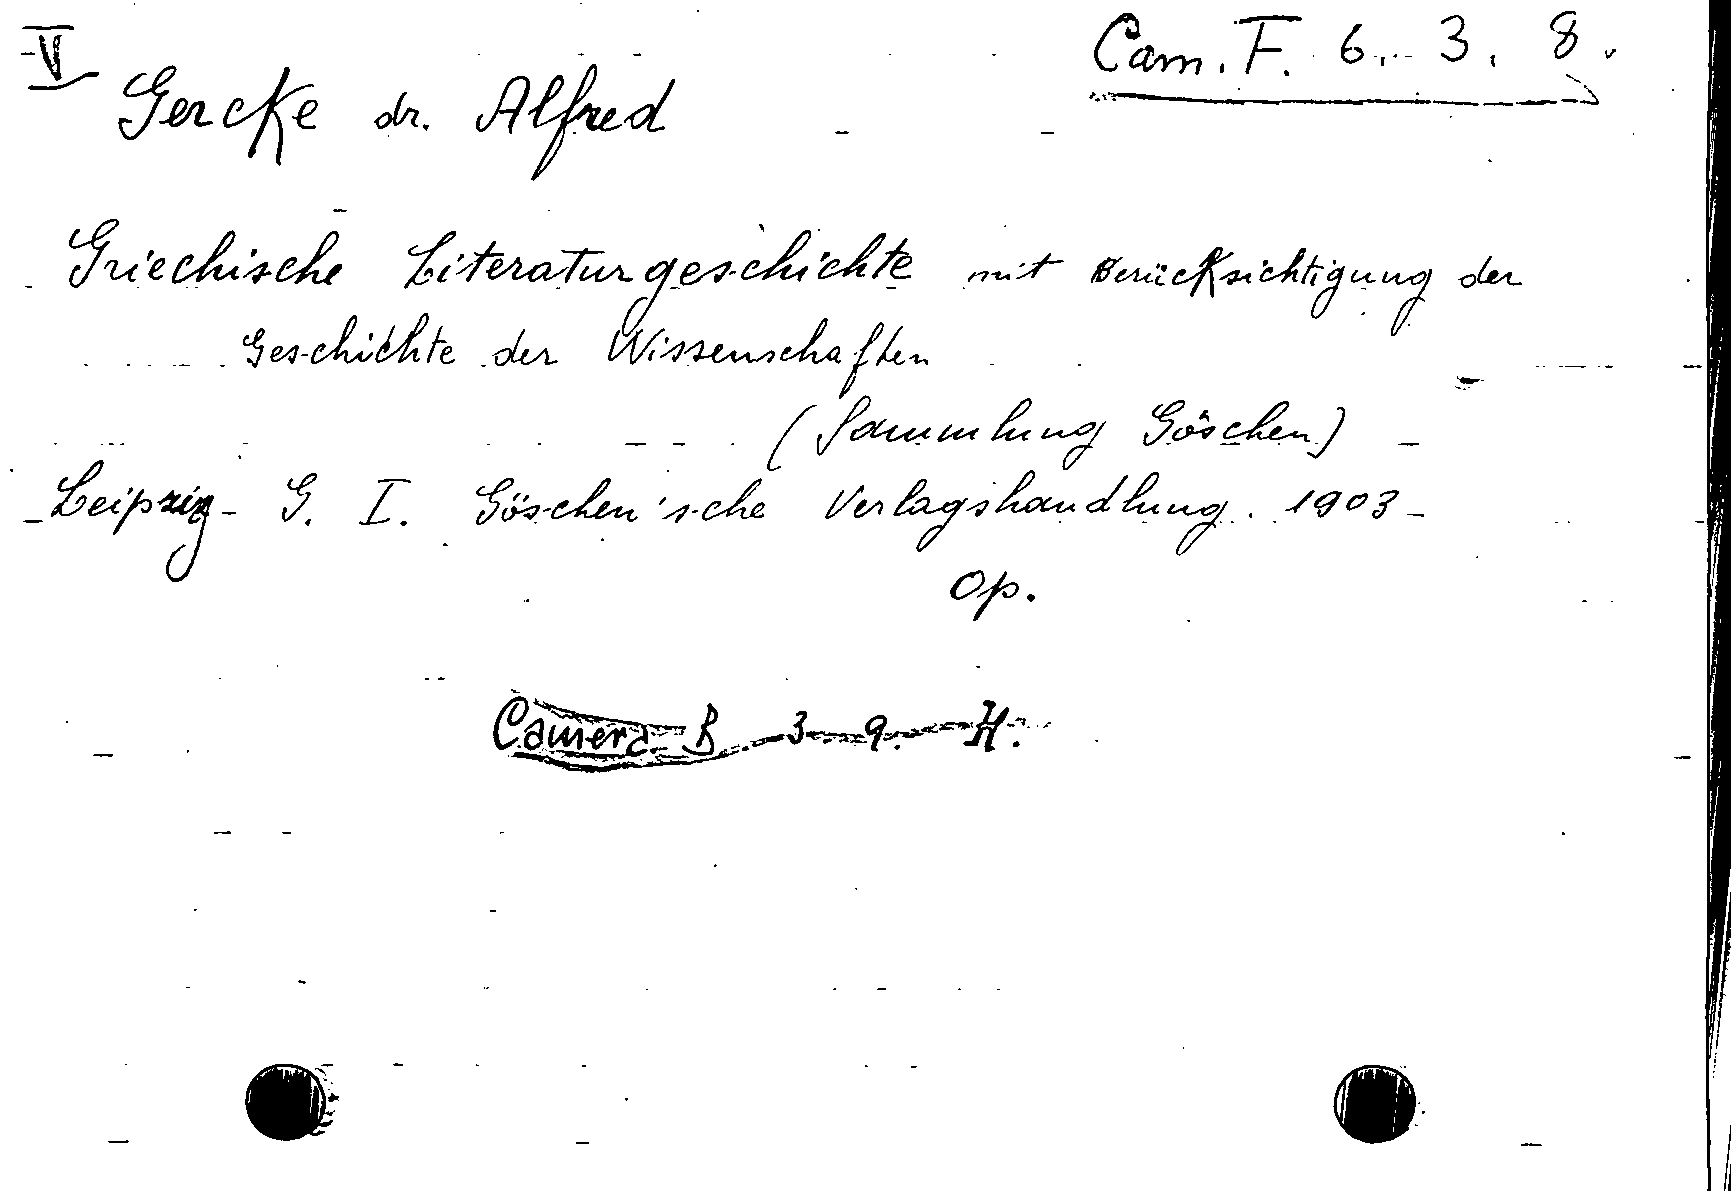 V
Cam. F. 6. 3. 8.
Gercke dr. Alfred
Griechische Literaturgeschichte mit Berücksichtigung der
Geschichte der Wissenschaften
(Sammlung Göschen)
Leipzig - G. I. Göschen's-che Verlagshandlung. 1903
Op.
Camera B 3 9. H.